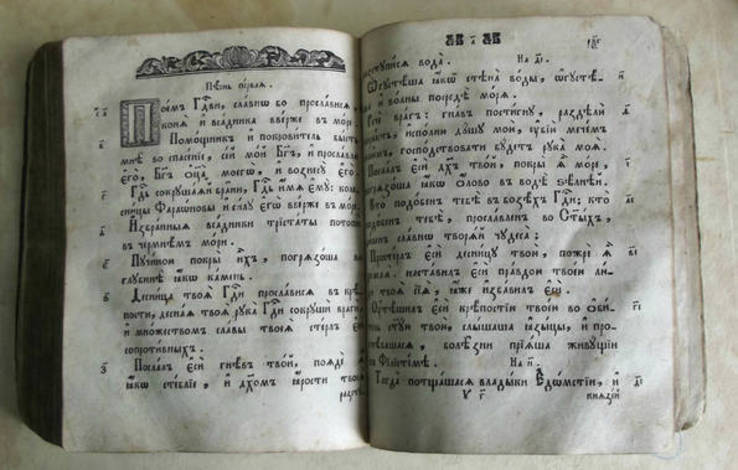 Пѣснь пе́рвая .
Пое́мъ Гд҇ви, сла́внѡ бо просла́вися ,
коня̀ и҆ вса́дника вве́рже въ мо́ре
Помо́щникъ и҆ покрови́тель бы́сть
мнѣ̀ во спасе́ніе , се́й мо́й Бг҃ъ , и҆ просла́влю
є҆го̀ , Бг҃ъ ѻ҆ц҃а̀ моегѡ̀ , и҆ вознесꙋ̀ є҆го̀ .
Гд҇ь сокрꙋша́яй бра́ни , Гд҇ь и҆́мя є҆мꙋ̀ : коле-
сни́цы Фараѡ́новы и҆ си́лꙋ є҆гѡ̀ вве́рже въ мо́ре
И҆збра̑нныя вса́дники триста́ты потопѝ
въ чермнѣ́мъ мо́ри .
Пꙋчи́ною покры̀ и҆́хъ , погрязо́ша во
глꙋбинѣ̀ ꙗ҆́кѡ ка́мень .
Десни́ца твоя̀ Гд҇и просла́вися въ крѣ́-
пости , десна́я твоя̀ рꙋка̀ Гд҇и сокрꙋшѝ врагѝ
и҆ мно́жествомъ сла́вы твоея̀ сте́рлъ є҆сѝ
сопроти́вныхъ .
Посла́лъ є҆сѝ гнѣ́въ тво́й , поядѐ я҆̀
ꙗ҆́кѡ сте́бліе , и҆ дх҃омъ ꙗ҆́рости твоея̀
разстꙋ-
На ді .
разстꙋпи́ся вода̀ .
Ѡ҆гꙋстѣ́ша ꙗ҆́кѡ стѣна̀ во́ды , ѡ҆гꙋстѣ́-
ша и҆ во́лны посредѣ̀ мо́ря .
Речѐ вра́гъ : гна́въ пости́гнꙋ , раздѣлю̀
коры́сть , и҆спо́лню дꙋ́шꙋ мою̀ , ᲂу҆бїю̀ мече́мъ
мои́мъ , госпо́дствовати бꙋ́детъ рꙋка̀ моя̀ .
Посла́лъ є҆сѝ дх҃ъ тво́й , покры̀ я҆̀ мо́ре ,
погрязо́ша ꙗ҆́кѡ ѻ҆́лово въ водѣ̀ ѕѣ́лнѣй .
Кто̀ подо́бенъ тебѣ̀ въ бозѣ́хъ Гд҇и : кто̀
подо́бенъ тебѣ̀ , просла́вленъ во Ст҃ы́хъ ,
ди́венъ сла́внѡ творя́й чꙋдеса̀ ;
Просте́ръ є҆сѝ десни́цꙋ твою̀ , пожрѐ я҆̀
земля̀ . наста́вилъ є҆сѝ пра́вдою твое́ю лю́-
ди твоя̀ сїя̑ , ꙗ҆̀же и҆зба́вилъ є҆сѝ .
Оу҆тѣ́шилъ є҆сѝ крѣ́постїю твое́ю во ѻ҆би́-
тель ст҃ꙋ́ю твою̀ , слы́шаша ꙗ҆зы́цы , и҆ про-
гнѣ́вашася , болѣ̑зни прїя́ша живꙋ́щїи
въ Фїлїсті́мѣ . На и҃ .
Тогда̀ потща́шася влады̑ки Е҆дѡ́мстїи , и҆
кня̑зи